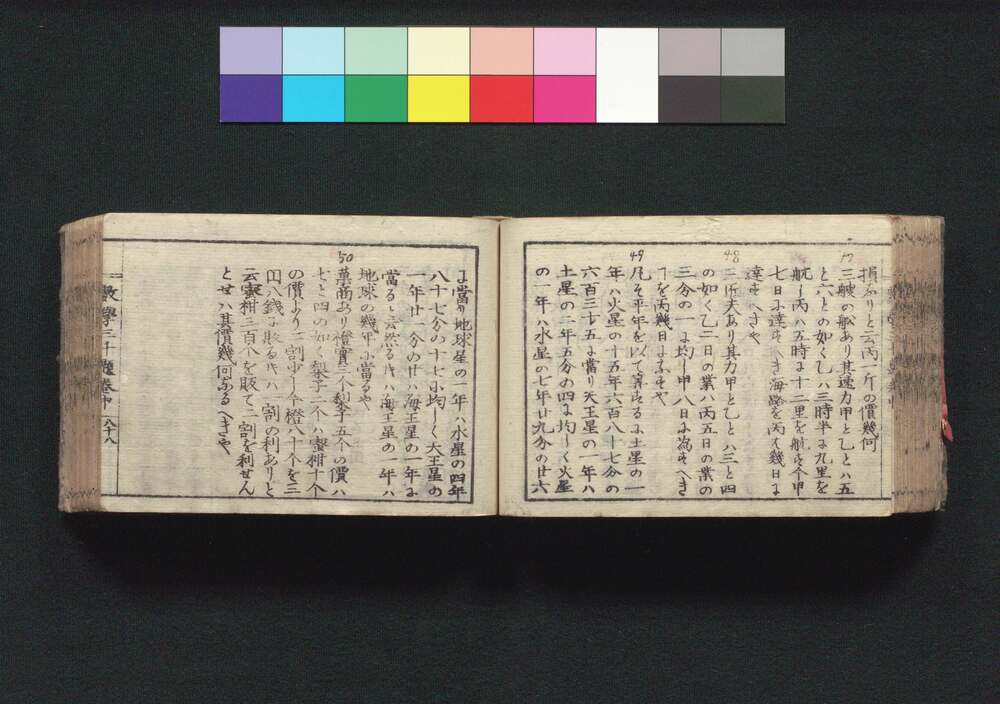 損ありと云丙一斤の價幾何
47
三艘の船あり其速力甲と乙とハ五
と六との如く乙ハ三時半に九里を
航し丙ハ五時に十二里を航す今甲
七日に達すへき海路を丙ハ幾日に
達すへきや
48
三匠夫あり其力甲と乙とハ三と四
の如く乙二日の業ハ丙五日の業の
三分の一に均し甲八日に為すへき
丁を丙幾日に為すや
49
凡そ平年を以て算するに土星の一
年ハ火星の十五年六百八十七分の
六百三十五に當り天王星の一年ハ
土星の二年五分の四に均しく火星
の一年ハ水星の七年廿九分の廿六
に當り地球星の一年ハ水星の四年
八十七分の十七に均しく天王星の
一年廿一分の廿ハ海王星の一年に
當ると云然るキハ海王星の一年ハ
地球の幾年に當るや
50
菓商あり橙實三个梨子五个の價ハ
七と四の如く梨子二个ハ蜜柑十个
の價より二割少し今橙八十个を三
円八錢に販るキハ一割の利ありと
云蜜柑三百个を販て二割を利せん
とせハ其價幾何なるへきや
數學三千題卷中 八十八